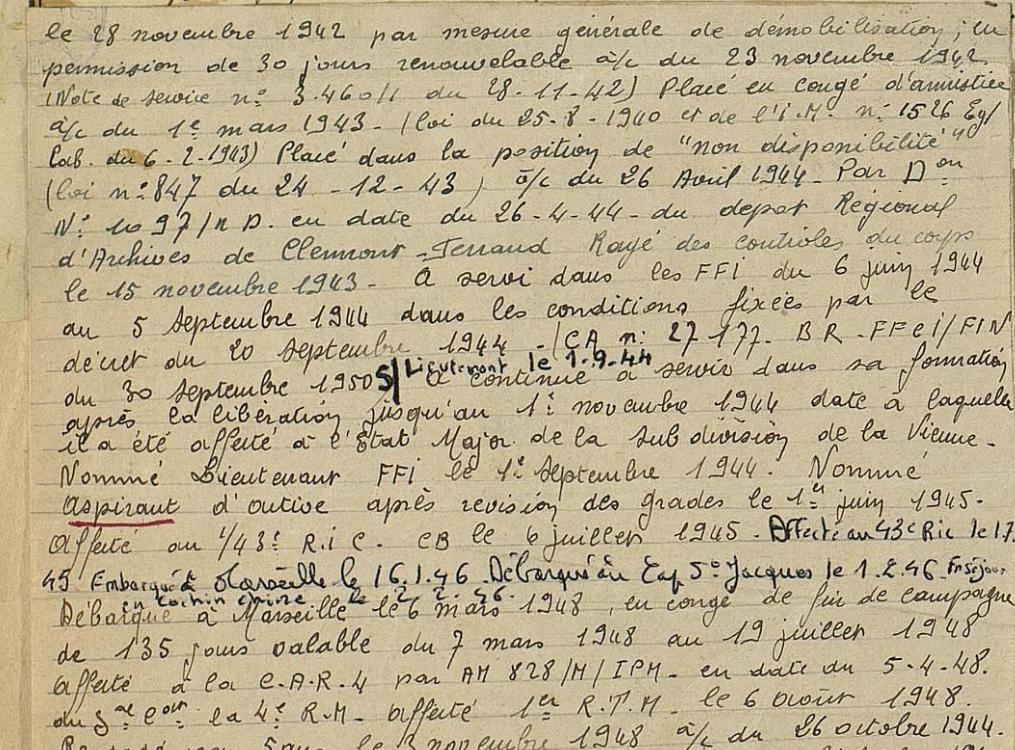 le 28 novembre 1942 par mesure générale de démobilisation ; en
permission de 30 jours renouvelable à/c du 23 novembre 1942
(Note de service n° 3.460/1 du 28-11-42) Placé en congé d'armistice
à/c du 1e mars 1943 - (loi du 25-8-1940 et de l'I.M. n° 1526 Eg/
Cab. du 6-2-1943) Placé dans la position de "non disponibilité"
(loi n° 847 du 24-12-43) à/c du 26 Avril 1944. Par Don
N° 1097/ D. en date du 26-4-44 - du depot Régional
d'Archives de Clermont-Ferrand Rayé des controles du corps
le 15 novembre 1943 - A servi dans les FFI du 6 juin 1944
au 5 Septembre 1944 dans les conditions fixées par le
décret du 20 septembre 1944 - (CA n° 27177. BR - FFCI/FIN
du 30 septembre 1950 S/Lieutenant le 1.9.44 A continué à servir dans sa formation
après la libération jusqu'au 1er novembre 1944 date à laquelle
il a été affecté à l'Etat Major de la subdivision de la Vienne -
Nommé Lieutenant FFI le 1e Septembre 1944. Nommé
aspirant d'active après revision des grades le 1er juin 1945 -
Affecté au 1/43e R.I.C. CB le 6 juillet 1945 - Affecté au 43e Ric le 1.7.
45 Embarqué à Marseille le 16.1.46. Débarqué au Cap St Jacques le 1.2.46. En séjour
en Cochin chine le 2.2.46.
Débarqué à Marseille le 6 mars 1948, en congé de fin de campagne
de 135 jours valable du 7 mars 1948 au 19 juillet 1948
affecté à la C.A.R.4 par AM 828/M/IPM - en date du 5-4-48.
du la 4e R.M - affecté 1er R.T.M. le 6 août 1948.
5 le 3 novembre 1948 à/c du 26 octobre 1944.